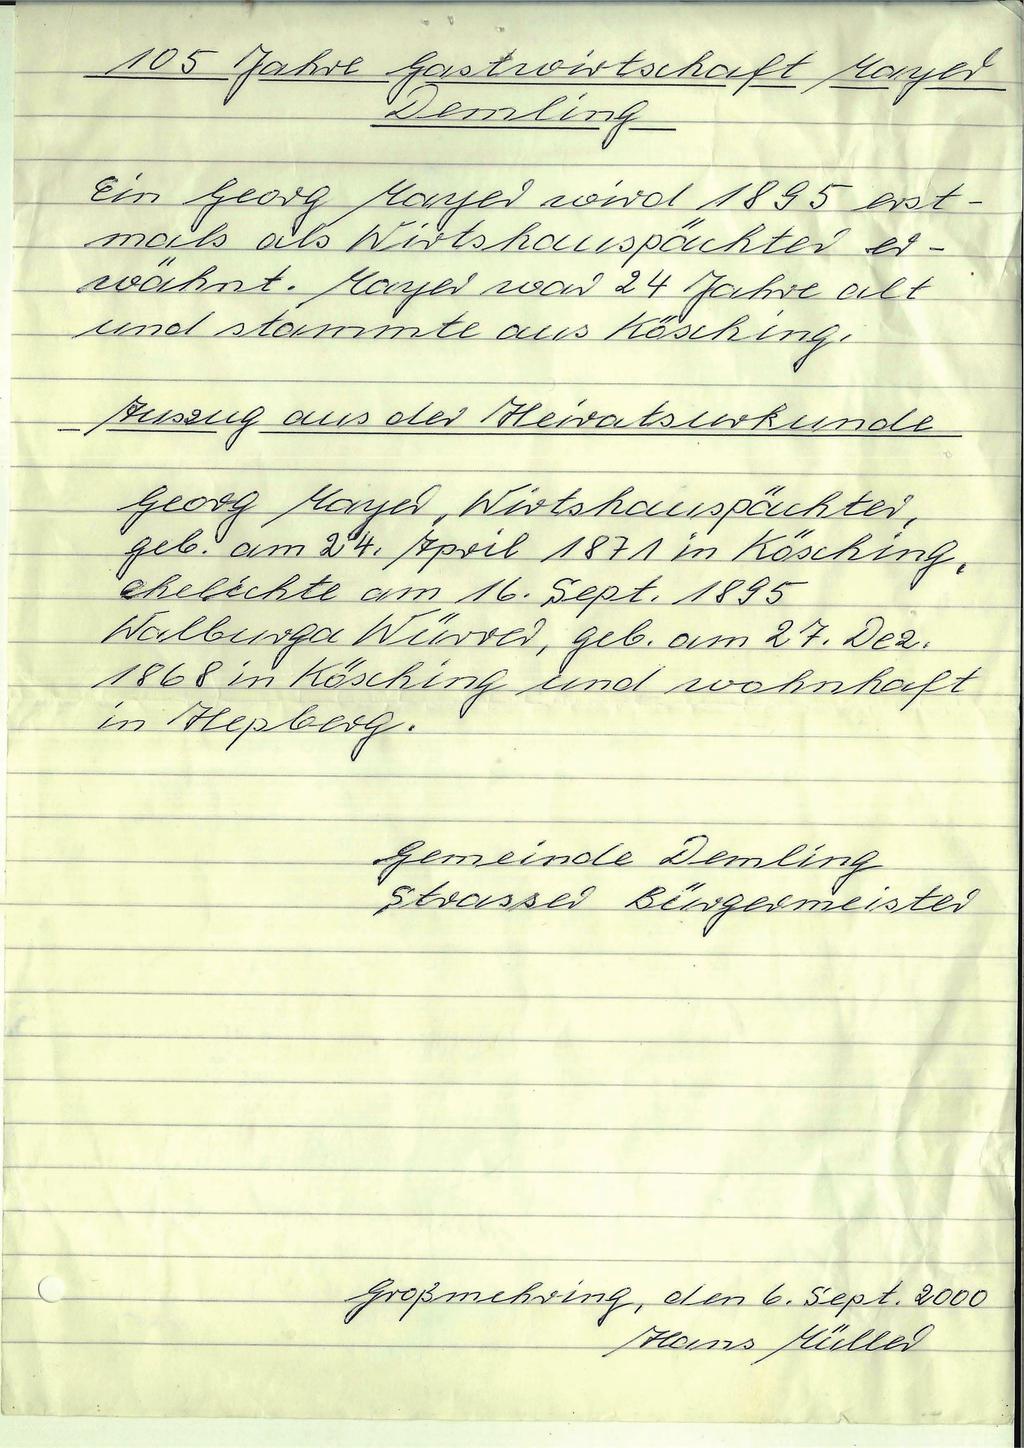 105 Jahre Gastwirtschaft Mayer
Demling
Ein Georg Mayer wird 1895 erst-
mals als Wirtshauspächter er-
wähnt. Mayer war 24 Jahre alt
und stammte aus Kösching.
Auszug aus der Heiratsurkunde
Georg Mayer, Wirtshauspächter,
geb. am 24. April 1871 in Kösching,
ehelichte am 16. Sept. 1895
Walburga Würrer, geb. am 27. Dez.
1868 in Kösching und wohnhaft
in Hepberg.
Gemeinde Demling
Strasser Bürgermeister
Großmehring, den 6. Sept. 2000
Hans Müller